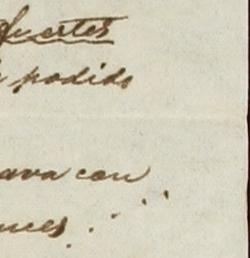 fuertes
podido
ava con
nces. . . .